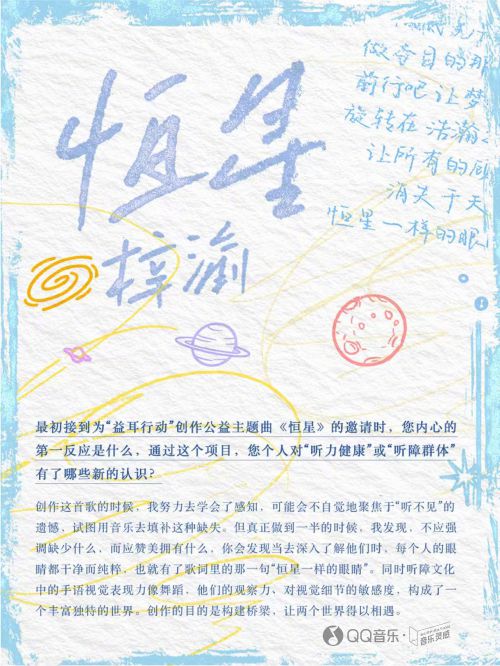 做夺目的那
前行吧 让梦
旋转在 浩瀚
让所有的
消失于天
恒星一样的眼
恒星
梓渝
最初接到为“益耳行动”创作公益主题曲《恒星》的邀请时，您内心的
第一反应是什么，通过这个项目，您个人对“听力健康”或“听障群体”
有了哪些新的认识？
创作这首歌的时候，我努力去学会了感知，可能会不自觉地聚焦于“听不见”的
遗憾，试图用音乐去填补这种缺失。但真正做到一半的时候，我发现，不应强
调缺少什么，而应赞美拥有什么，你会发现当去深入了解他们时，每个人的眼
睛都干净而纯粹，也就有了歌词里的那一句“恒星一样的眼睛”。同时听障文化
中的手语视觉表现力像舞蹈，他们的观察力、对视觉细节的敏感度，构成了一
个丰富独特的世界。创作的目的是构建桥梁，让两个世界得以相遇。
QQ音乐·音乐灵感